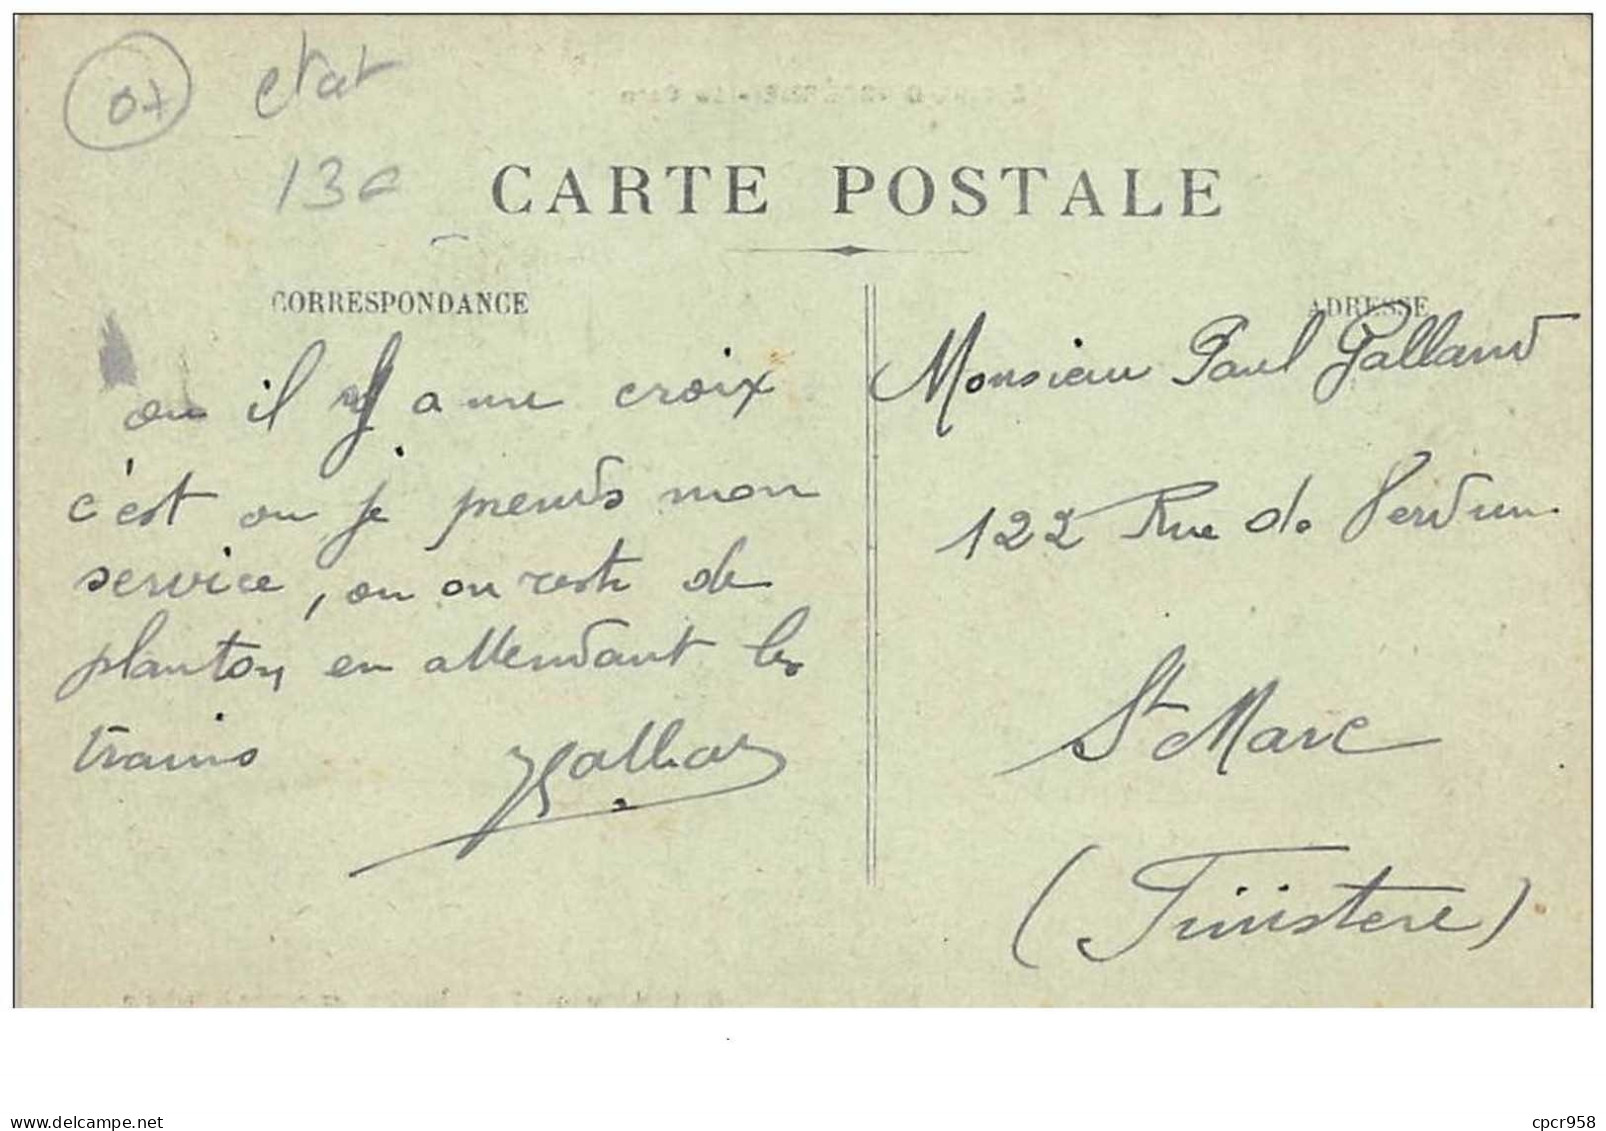 07 etat
13
CARTE POSTALE
CORRESPONDANCE
ou il y a une croix
c'est ou je prends mon
service, ou on reste de
planton en attendant les
trains
ADRESSE
Monsieur Paul Galland
122 Rue de Verdun
St Marc
(Finistere)
www.delcampe.net
cpcr958